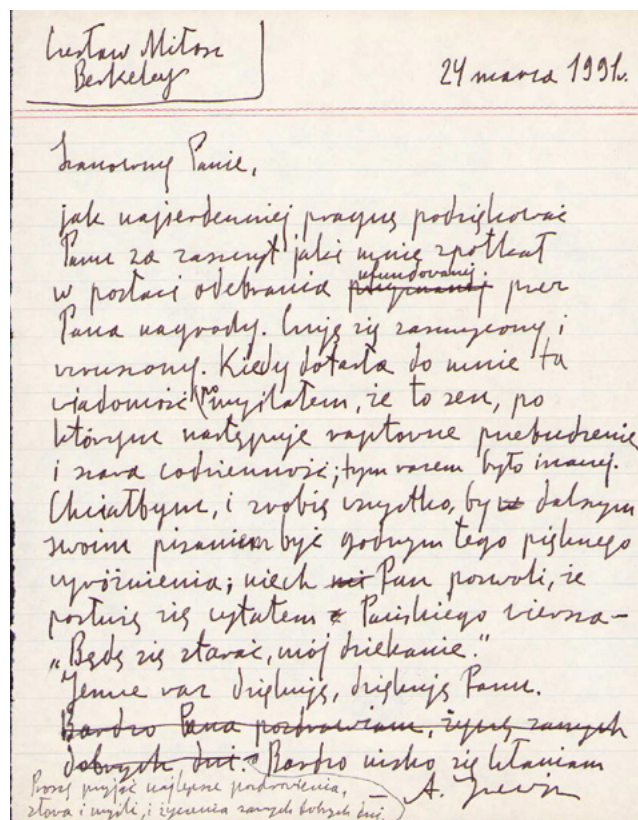 Czesław Miłosz
Berkeley
24 marca 1991r.
Szanowny Panie,
jak najserdeczniej pragnę podziękować
Panu za zaszczyt jaki mnie spotkał
w postaci odebrania przyznanej ufundowanej przez
Pana nagrody. Czuję się zaszczycony i
wzruszony. Kiedy dotarła do mnie ta
wiadomość pomyślałem, że to sen, po
którym następuje raptowne przebudzenie
i szara codzienność; tym razem było inaczej.
Chciałbym, i zrobię wszystko, by w dalszym
swoim pisaniem być godnym tego pięknego
wyróżnienia; niech mi Pan pozwoli, że
posłużę się cytatem z Pańskiego wiersza –
„Będę się starać, mój dziekanie."
Jeszcze raz dziękuję, dziękuję Panu.
Bardzo Pana pozdrawiam, życzę samych
dobrych dni. Bardzo nisko się kłaniam
Proszę przyjąć najlepsze pozdrowienia,
słowa i myśli, i życzenia samych dobrych dni.
– A.